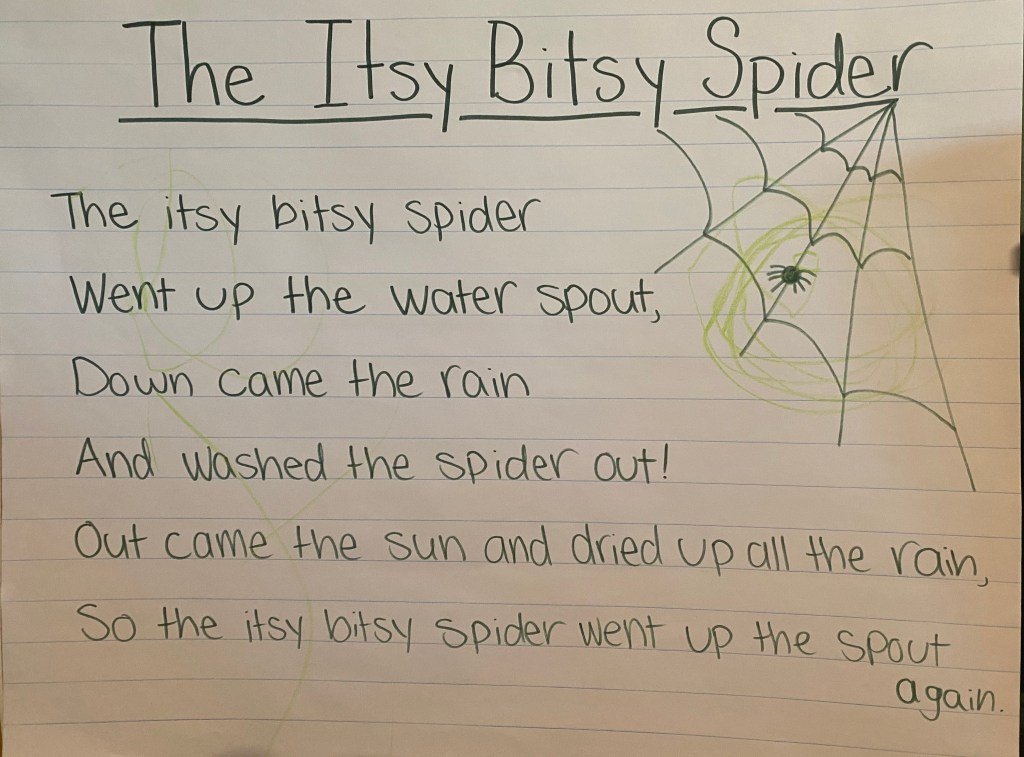 The Itsy Bitsy Spider
The itsy bitsy spider
Went up the water spout,
Down came the rain
And washed the spider out!
Out came the sun and dried up all the rain,
So the itsy bitsy spider went up the spout
again.